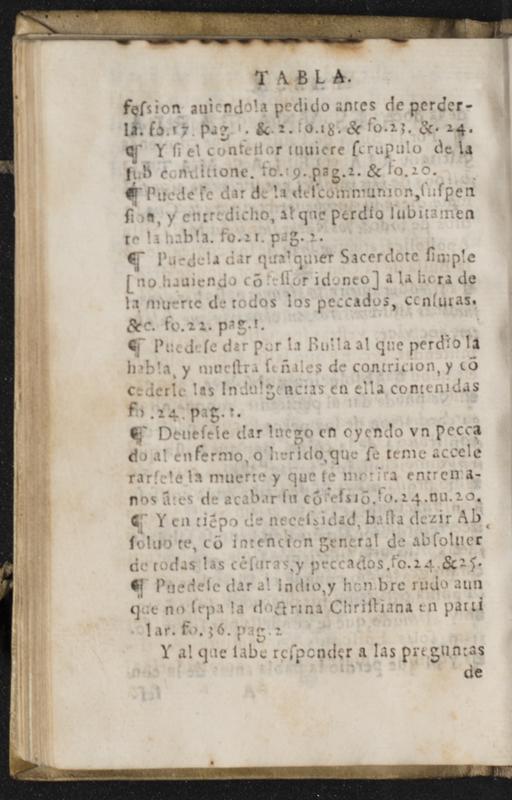 TABLA.
feſsion auiendola pedido antes de perder-
la. fo.17. pag. 1. & 2. fo.18. & fo.23. &. 24.
¶ Y ſi el confeſſor tuuiere ſcrupulo de la
ſub conditione. fo.19. pag.2. & fo.20.
¶ Puede ſe dar de la deſcommunion, ſuſpen
ſion, y entredicho, al que perdio ſubitamen
te la habla. fo.21. pag. 2.
¶ Puedela dar qualquier Sacerdote ſimple
[no hauiendo cõfeſſor idoneo] a la hora de
la muerte de todos los peccados, cenſuras.
&c. fo.22. pag.1.
¶ Puedeſe dar por la Bulla al que perdio la
habla, y mueſtra ſeñales de contricion, y cõ
cederle las Indulgencias en ella contenidas
fo .24. pag. 1.
¶ Deueſele dar luego en oyendo vn pecca
do al enfermo, o herido, que ſe teme accele
rarſele la muerte y que ſe morira entrema-
nos ãtes de acabar ſu cõfeſsiõ. fo.24.nu.20.
¶ Y en tiẽpo de neceſsidad, baſta dezir Ab
ſoluo te, cõ intencion general de abſoluer
de todas las cẽſuras, y peccados. fo.24.&25.
¶ Puedeſe dar al Indio, y hombre rudo aun
que no ſepa la doctrina Chriſtiana en parti
lar. fo.36. pag.2
Y al que ſabe reſponder a las preguntas
de